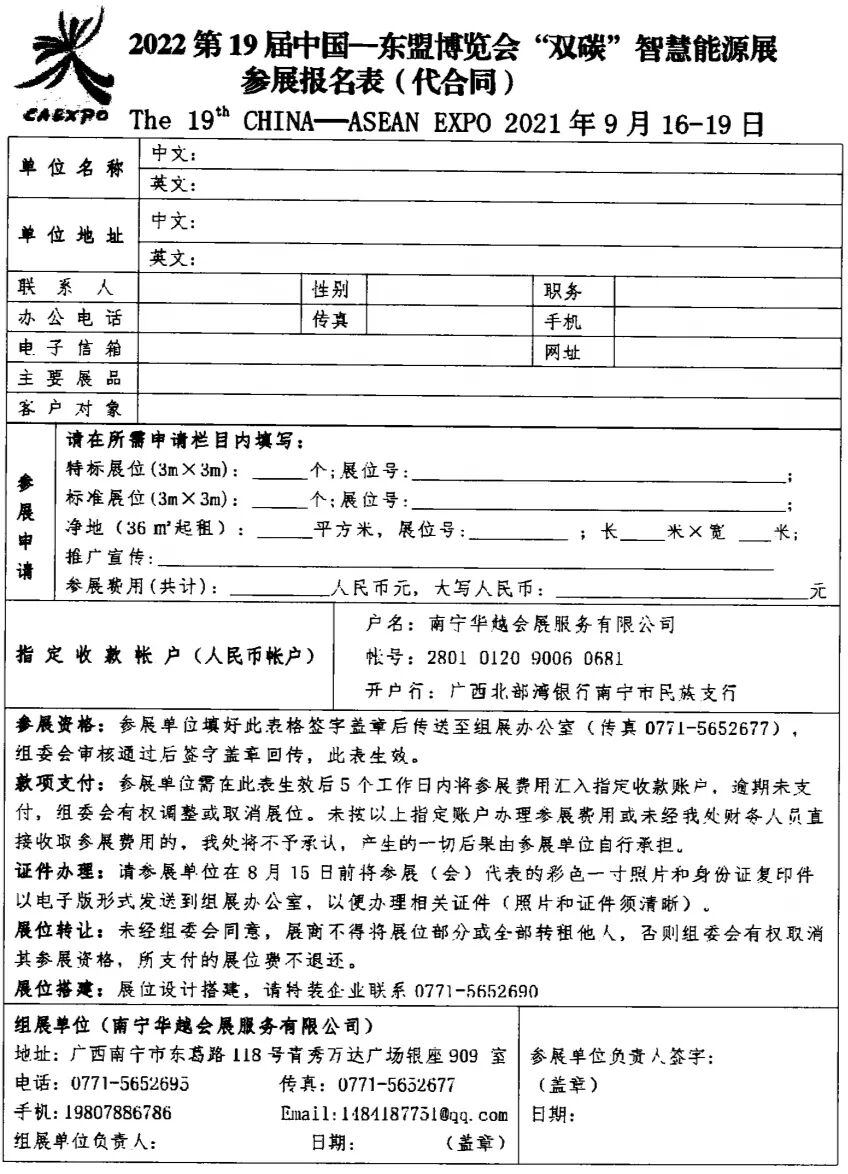 CAEXPO
2022第19届中国—东盟博览会“双碳”智慧能源展
参展报名表（代合同）
The 19th CHINA—ASEAN EXPO 2021年9月16-19日
单位名称 中文：
英文：
单位地址 中文：
英文：
联系人 性别 职务
办公电话 传真 手机
电子信箱 网址
主要展品
客户对象
参展申请
请在所需申请栏目内填写：
特标展位(3m×3m)：_____个;展位号:______________________________;
标准展位(3m×3m)：_____个;展位号:______________________________;
净地（36㎡起租）：_____平方米，展位号:_________；长____米×宽 ___米;
推广宣传:__________________________________________________
参展费用(共计)：_________人民币元，大写人民币：______________________元
指定收款帐户（人民币帐户）
户名：南宁华越会展服务有限公司
帐号：2801 0120 9006 0681
开户行：广西北部湾银行南宁市民族支行
参展资格：参展单位填好此表格签字盖章后传送至组展办公室（传真0771-5652677），
组委会审核通过后签字盖章回传，此表生效。
款项支付：参展单位需在此表生效后5个工作日内将参展费用汇入指定收款账户，逾期未支
付，组委会有权调整或取消展位。未按以上指定账户办理参展费用或未经我处财务人员直
接收取参展费用的，我处将不予承认，产生的一切后果由参展单位自行承担。
证件办理：请参展单位在8月15日前将参展（会）代表的彩色一寸照片和身份证复印件
以电子版形式发送到组展办公室，以便办理相关证件（照片和证件须清晰）。
展位转让：未经组委会同意，展商不得将展位部分或全部转租他人，否则组委会有权取消
其参展资格，所支付的展位费不退还。
展位搭建：展位设计搭建，请特装企业联系0771-5652690
组展单位（南宁华越会展服务有限公司）
地址：广西南宁市东葛路118号青秀万达广场银座909 室
电话：0771-5652695 传真：0771-5652677
手机:19807886786 Email:1484187751@qq.com
组展单位负责人： 日期： （盖章）
参展单位负责人签字：
（盖章）
日期：